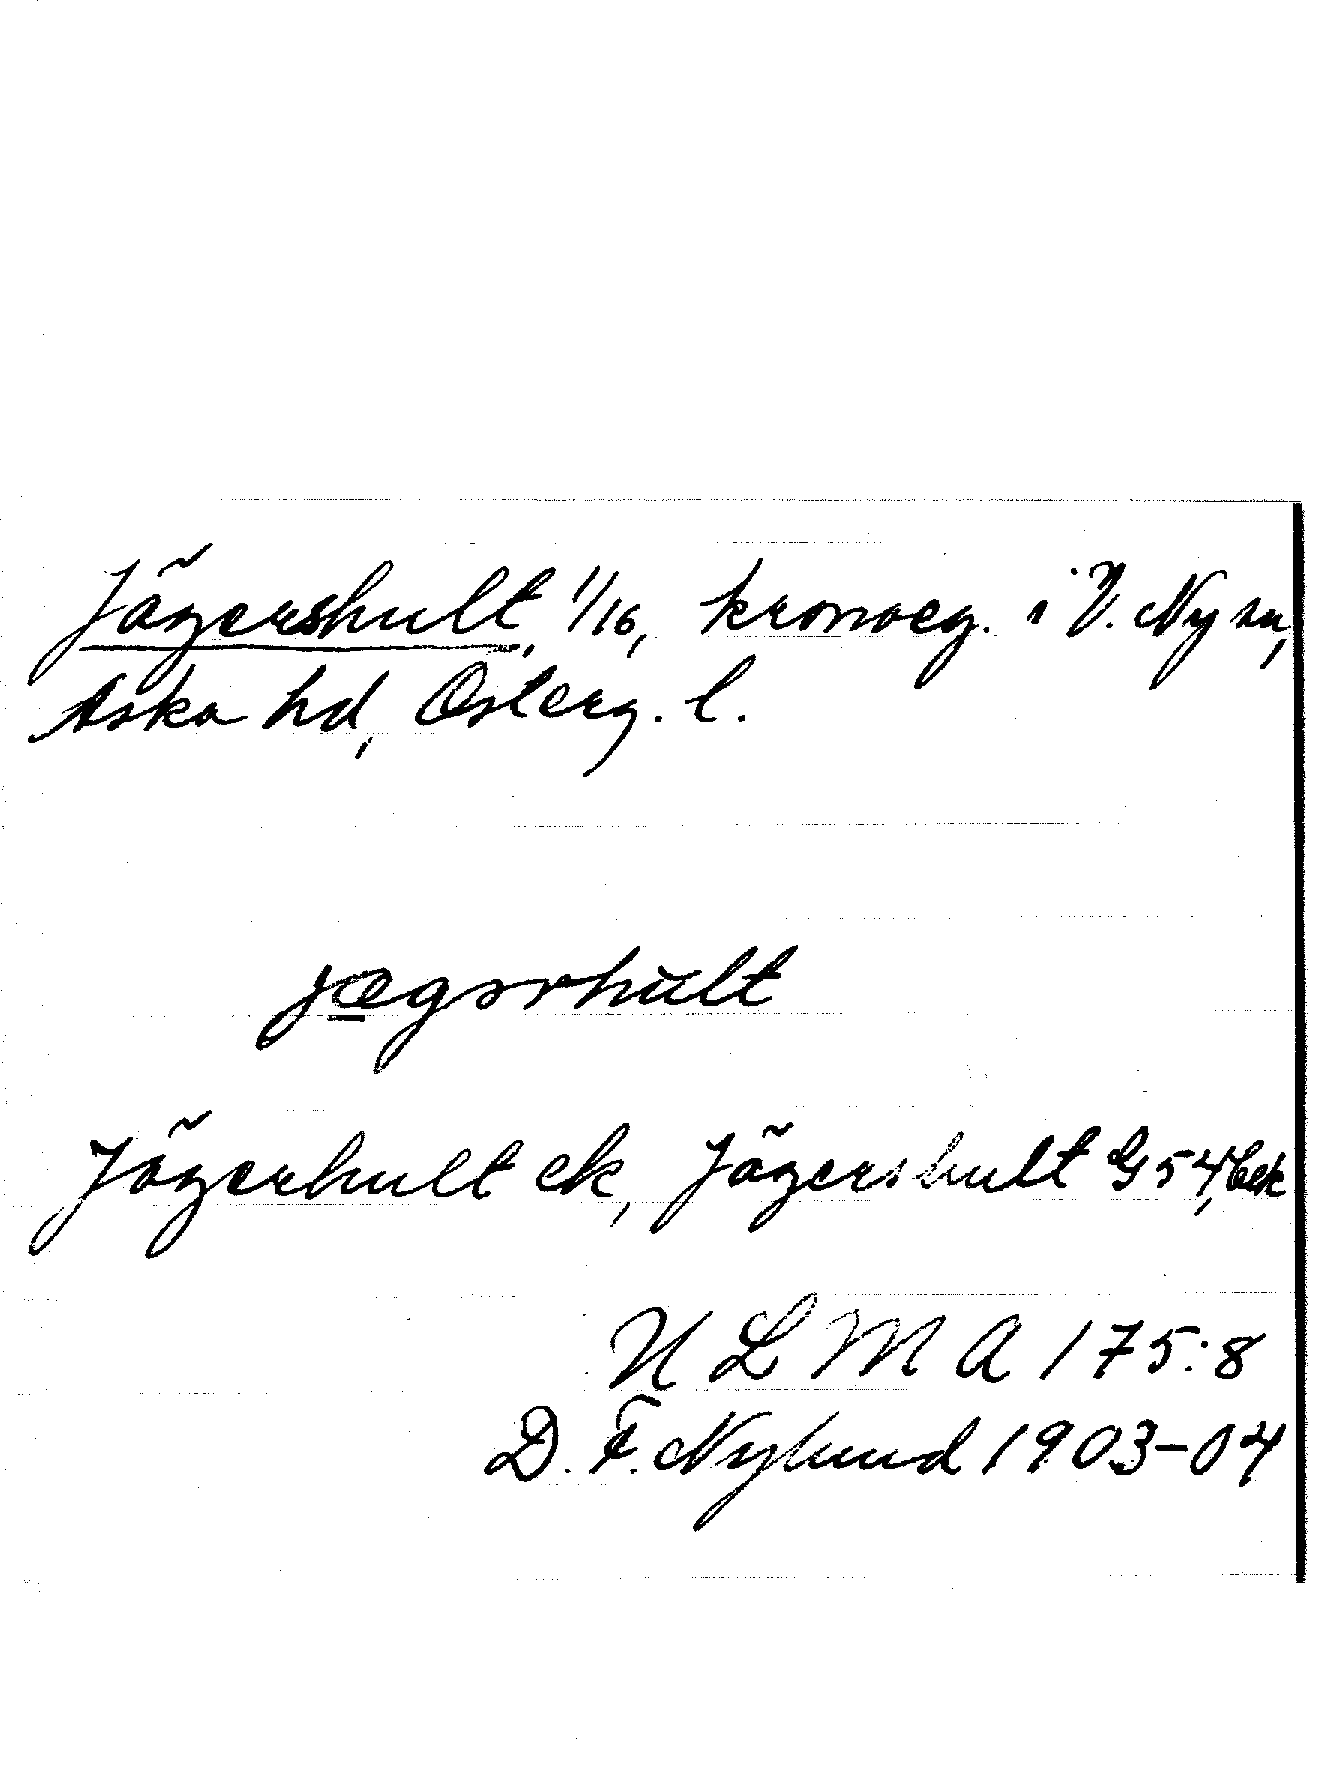 Jägershult, 1/16, kronoeg. i V. Ny sn,
Aska hd, Österg. l.
jægərhult
Jägerhult ek, Jägershult G 54, bek
ULMA 175:8
D. F. Nylund 1903-04